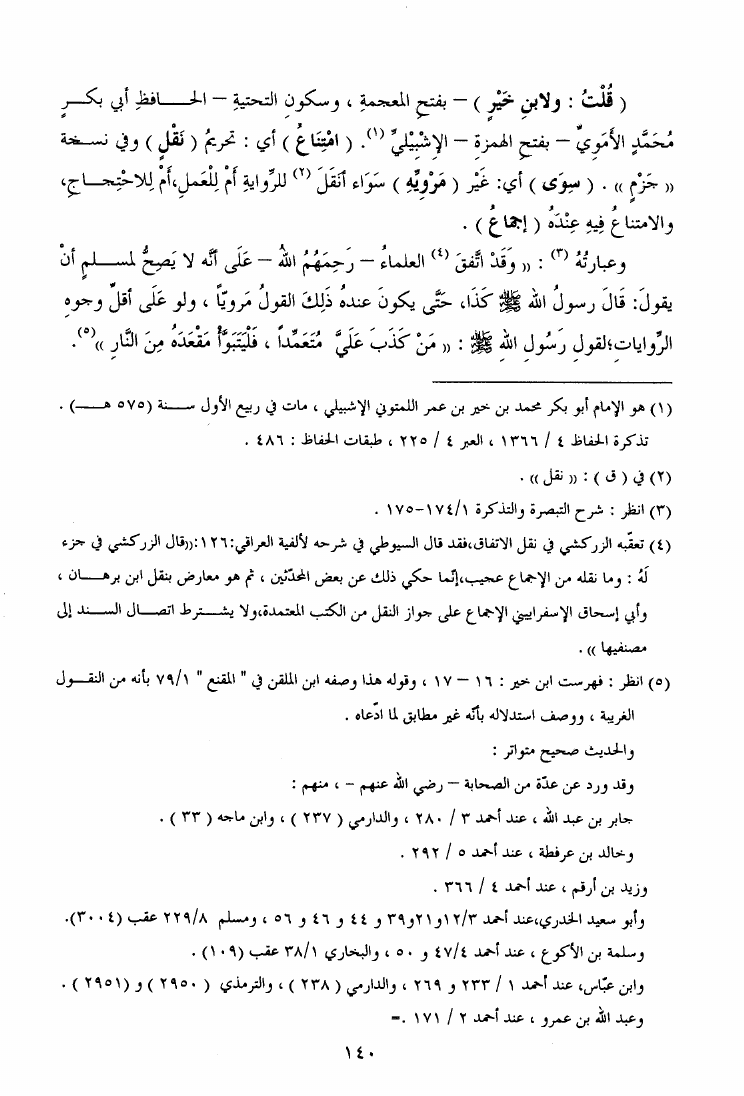 ( قُلْتُ : ولابنِ خَيْرٍ ) – بفتحِ المعجمةِ ، وسكونِ التحتيةِ – الحـــافظِ أبي بكـــرٍ
مُحَمَّدٍ الأمَوِيِّ – بفتحِ الهمزةِ – الإِشْبِيْلِيِّ (١). ( امْتِنَاعُ ) أي : تحريمُ ( نَقْلٍ ) وفي نسـخة
« جَزْمٍ » . ( سِوَى ) أي: غَيْر ( مَرْوِيِّهِ ) سَوَاء أنَقَلَ (٢) للرِّوايةِ أمْ لِلْعملِ،أمْ لِلاحْتِجــاجِ،
والامتناعُ فِيهِ عِنْدَهُ ( إجماعُ ) .
وعبارتُهُ (٣) : « وَقَدْ اتَّفقَ (٤) العلماءُ – رَحِمَهُمُ اللهُ – عَلَى أنَّه لا يَصِحُّ لمســلمٍ أنْ
يقولَ: قَالَ رسولُ الله ﷺ كَذَا، حَتَّى يكونَ عندهُ ذَلِكَ القولُ مَرويّاً ، ولو عَلَى أقلِّ وجوهِ
الرِّواياتِ؛لقولِ رَسُولِ اللهِ ﷺ : « مَنْ كَذَبَ عَلَيَّ مُتَعَمِّداً ، فَلْيَتَبَوَّأْ مَقْعَدَهُ مِنَ النَّارِ »(٥).
(١) هو الإمام أبو بكر محمد بن خير بن عمر اللمتوني الإشبيلي ، مات في ربيع الأول ســنة (٥٧٥ هـــ) .
تذكرة الحفاظ ٤ / ١٣٦٦ ، العبر ٤ / ٢٢٥ ، طبقات الحفاظ : ٤٨٦ .
(٢) في ( ق ) : « نقل » .
(٣) انظر : شرح التبصرة والتذكرة ١٧٤/١-١٧٥ .
(٤) تعقّبه الزركشي في نقل الاتفاق،فقد قال السيوطي في شرحه لألفية العراقي:١٢٦:«قال الزركشي في جزء
لَهُ : وما نقله من الإجماع عجيب،إنّما حكي ذلك عن بعض المحدّثين ، ثم هو معارض بنقل ابن برهـــان ،
وأبي إسحاق الإسفراييني الإجماع على جواز النقل من الكتب المعتمدة،ولا يشـــترط اتصـــال الســـند إلى
مصنفيها » .
(٥) انظر : فهرست ابن خير : ١٦ – ١٧ ، وقوله هذا وصفه ابن الملقن في " المقنع " ٧٩/١ بأنه من النقـــول
الغريبة ، ووصف استدلاله بأنّه غير مطابق لما ادّعاه .
والحديث صحيح متواتر :
وقد ورد عن عدّة من الصحابة – رضي الله عنهم – ، منهم :
جابر بن عبد الله ، عند أحمد ٣ / ٢٨٠ ، والدارمي ( ٢٣٧ ) ، وابن ماجه ( ٣٣ ) .
وخالد بن عرفطة ، عند أحمد ٥ / ٢٩٢ .
وزيد بن أرقم ، عند أحمد ٤ / ٣٦٦ .
وأبو سعيد الخدري،عند أحمد ١٢/٣و٢١و٣٩ و ٤٤ و ٤٦ و ٥٦ ، ومسلم ٢٢٩/٨ عقب (٣٠٠٤).
وسلمة بن الأكوع ، عند أحمد ٤٧/٤ و ٥٠ ، والبخاري ٣٨/١ عقب (١٠٩) .
وابن عبّاس، عند أحمد ١ / ٢٣٣ و ٢٦٩ ، والدارمي ( ٢٣٨ ) ، والترمذي ( ٢٩٥٠ ) و (٢٩٥١ ) .
وعبد الله بن عمرو ، عند أحمد ٢ / ١٧١ .=
١٤٠